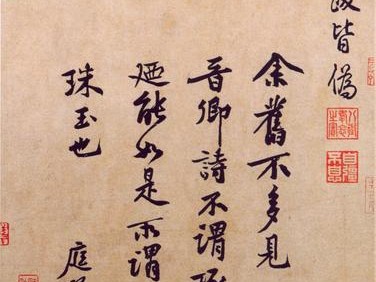 皆偽
余舊不多見
晉卿詩不謂
廼能如是所謂
珠玉也
庭